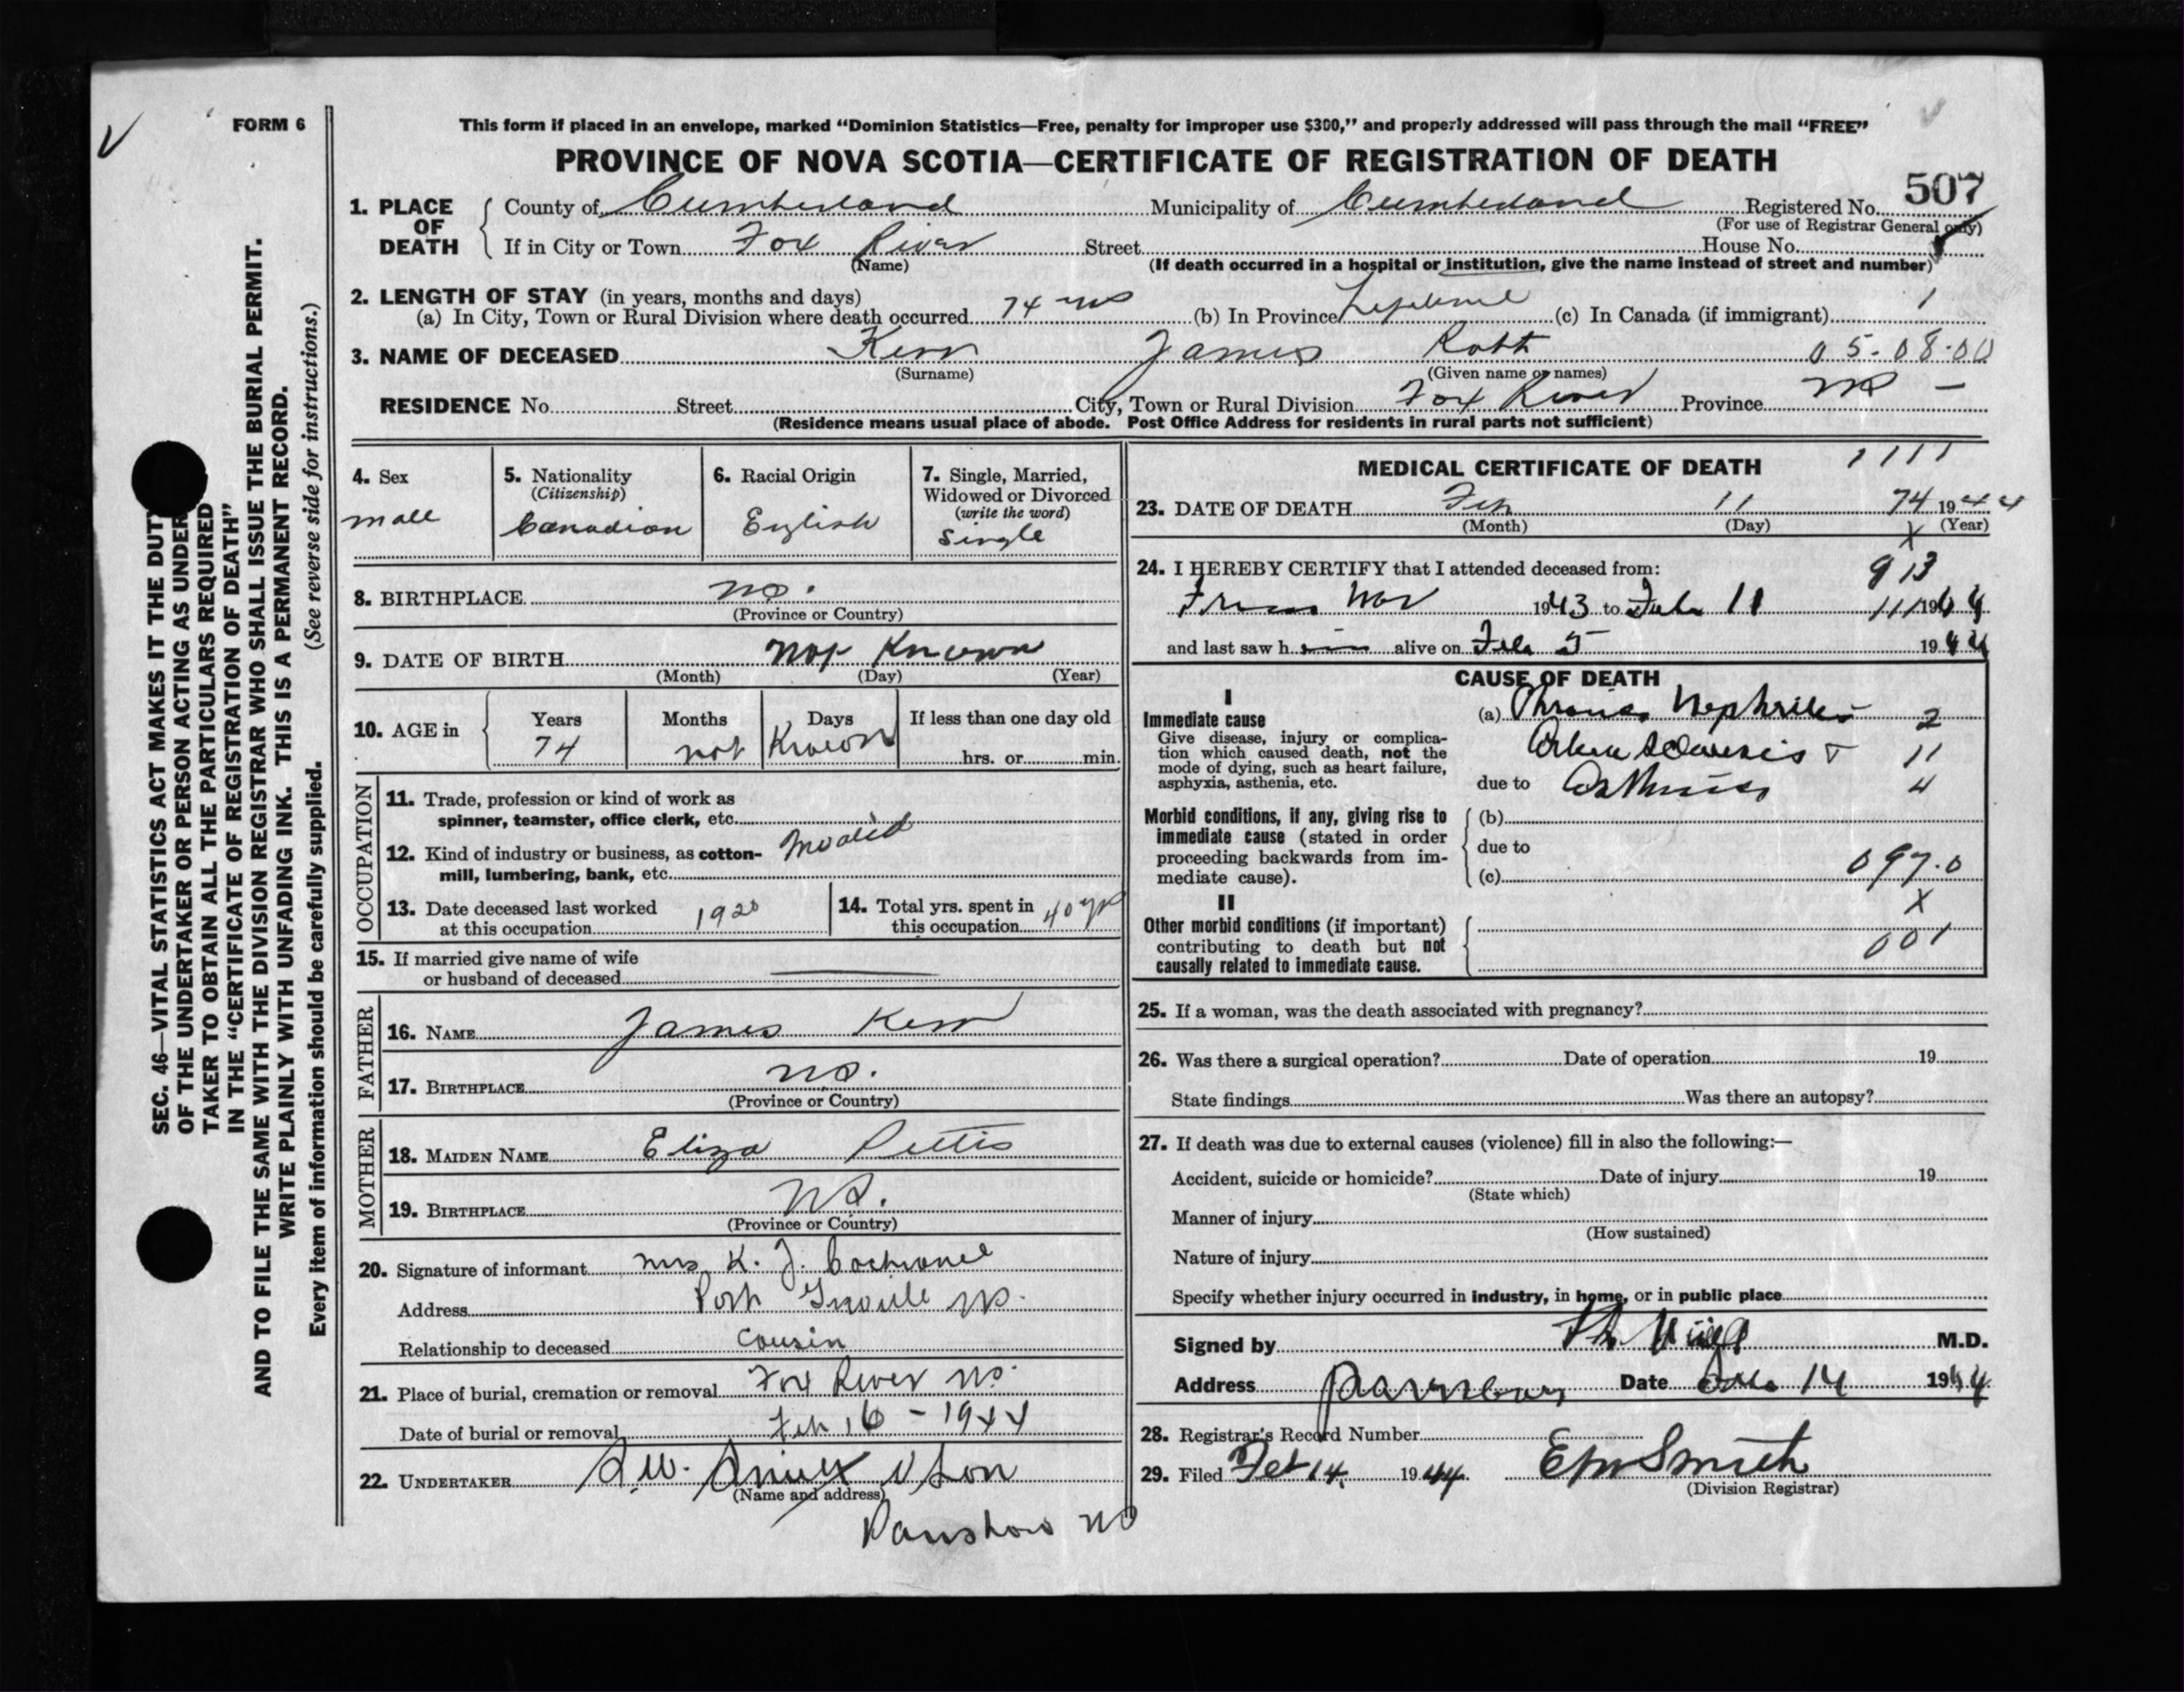 FORM 6
This form if placed in an envelope, marked “Dominion Statistics—Free, penalty for improper use $300,” and properly addressed will pass through the mail “FREE”
PROVINCE OF NOVA SCOTIA—CERTIFICATE OF REGISTRATION OF DEATH
507
1. PLACE OF DEATH County of Cumberland Municipality of Cumberland Registered No.
(For use of Registrar General only)
If in City or Town Fox River Street House No.
(Name) (If death occurred in a hospital or institution, give the name instead of street and number)
2. LENGTH OF STAY (in years, months and days)
(a) In City, Town or Rural Division where death occurred 74 (b) In Province (c) In Canada (if immigrant) 1
3. NAME OF DECEASED Kerr James Robt 05-08-00
(Surname) (Given name or names)
RESIDENCE No. Street City, Town or Rural Division Fox River Province NS -
(Residence means usual place of abode. Post Office Address for residents in rural parts not sufficient)
4. Sex
male
5. Nationality
(Citizenship)
Canadian
6. Racial Origin
English
7. Single, Married,
Widowed or Divorced
(write the word)
Single
8. BIRTHPLACE NS.
(Province or Country)
9. DATE OF BIRTH Not Known
(Month) (Day) (Year)
10. AGE in Years Months Days If less than one day old
74 not Known hrs. or min.
OCCUPATION
11. Trade, profession or kind of work as
spinner, teamster, office clerk, etc.
Invalid
12. Kind of industry or business, as cotton-
mill, lumbering, bank, etc.
13. Date deceased last worked
at this occupation 1920
14. Total yrs. spent in
this occupation 40 yrs
15. If married give name of wife
or husband of deceased
FATHER
16. NAME James Kerr
17. BIRTHPLACE NS.
(Province or Country)
MOTHER
18. MAIDEN NAME Eliza Pettis
19. BIRTHPLACE NS.
(Province or Country)
20. Signature of informant Mrs K. J. Cochrane
Address Port Greville NS.
Relationship to deceased Cousin
21. Place of burial, cremation or removal Fox River NS.
Date of burial or removal Feb 16 - 1944
22. UNDERTAKER & Son
(Name and address)
NS
MEDICAL CERTIFICATE OF DEATH 1111
23. DATE OF DEATH Feb 11 74 1944
(Month) (Day) (Year)
X
24. I HEREBY CERTIFY that I attended deceased from: 913
From Nov 1943 to Feb 11 11/1944
and last saw him alive on Feb 5 1944
CAUSE OF DEATH
I
Immediate cause
Give disease, injury or complica-
tion which caused death, not the
mode of dying, such as heart failure,
asphyxia, asthenia, etc.
(a) Chronic Nephritis 2
Arterio Sclerosis & 11
due to Asthma 4
Morbid conditions, if any, giving rise to
immediate cause (stated in order
proceeding backwards from im-
mediate cause).
(b)
due to
(c) 097.0
X
II
Other morbid conditions (if important)
contributing to death but not
causally related to immediate cause.
001
25. If a woman, was the death associated with pregnancy?
26. Was there a surgical operation? Date of operation 19
State findings Was there an autopsy?
27. If death was due to external causes (violence) fill in also the following:—
Accident, suicide or homicide? Date of injury 19
(State which)
Manner of injury
(How sustained)
Nature of injury
Specify whether injury occurred in industry, in home, or in public place
Signed by M.D.
Address Parrsboro Date 14 1944
28. Registrar's Record Number
29. Filed Feb 14. 1944. E M Smith
(Division Registrar)
SEC. 46—VITAL STATISTICS ACT MAKES IT THE DUTY
OF THE UNDERTAKER OR PERSON ACTING AS UNDER
TAKER TO OBTAIN ALL THE PARTICULARS REQUIRED
IN THE “CERTIFICATE OF REGISTRATION OF DEATH”
AND TO FILE THE SAME WITH THE DIVISION REGISTRAR WHO SHALL ISSUE THE BURIAL PERMIT.
WRITE PLAINLY WITH UNFADING INK. THIS IS A PERMANENT RECORD.
Every item of information should be carefully supplied. (See reverse side for instructions.)